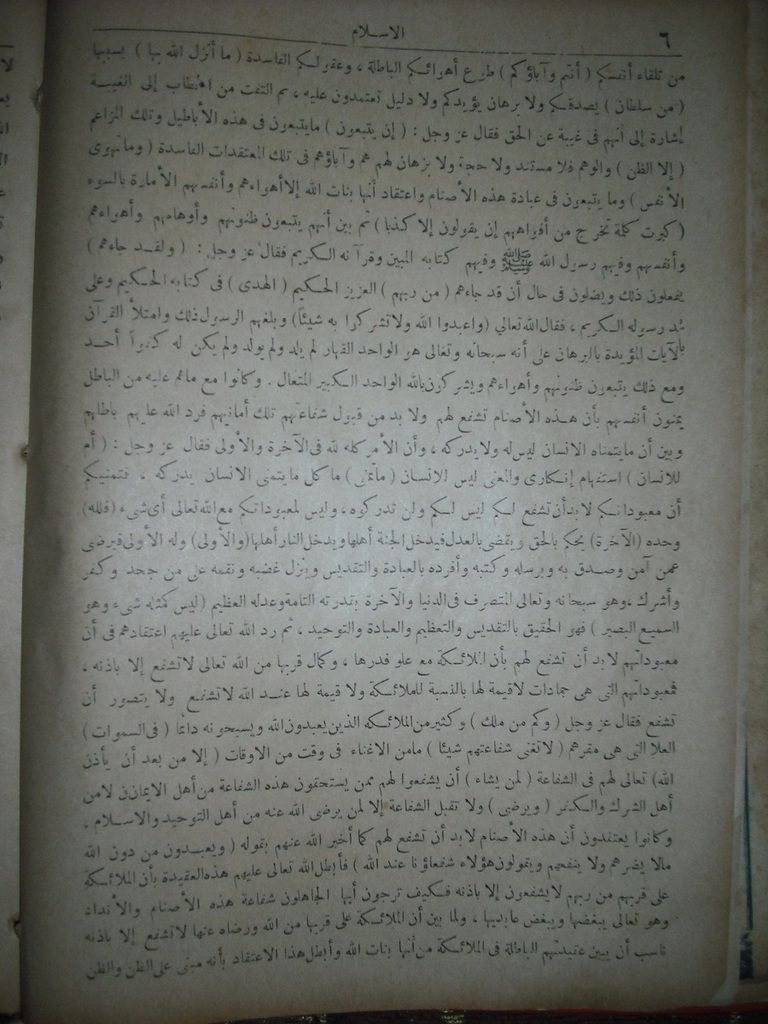 ٦
الاسلام
من تلقاء أنفسكم ( أنتم وآباؤكم ) طوع أهوائكم الباطلة ، وعقولكم الفاسدة ( ما أنزل الله بها ) بسببها
( من سلطان ) يصدقكم ولا برهان يؤيدكم ولا دليل تعتمدون عليه ، ثم التفت من الخطاب إلى الغيبة
إشارة إلى أنهم فى غيبة عن الحق فقال عز وجل : ( إن يتبعون ) مايتبعون فى هذه الأباطيل وتلك المزاعم
( إلا الظن ) والوهم فلا مستند ولا حجة ولا برهان لهم هم وآباؤهم فى تلك المعتقدات الفاسدة ( وماتهوى
الأنفس ) وما يتبعون فى عبادة هذه الأصنام واعتقاد أنها بنات الله إلا أهواءهم وأنفسهم الأمارة بالسوء
( كبرت كلمة تخرج من أفواههم إن يقولون إلا كذبا ) ثم بين أنهم يتبعون ظنونهم وأوهامهم وأهواءهم
وأنفسهم وفيهم رسول الله ﷺ وفيهم كتابه المبين وقرآنه الكريم فقال عز وجل : ( ولقد جاءهم )
يفعلون ذلك ويضلون فى حال أن قد جاءهم ( من ربهم ) العزيز الحكيم ( الهدى ) فى كتابه الحكيم وعلى
يد رسوله الكريم ، فقال الله تعالى ( واعبدوا الله ولا تشركوا به شيئا ) وبلغهم الرسول ذلك وامتلأ القرآن
بالآيات المؤيدة بالبرهان على أنه سبحانه وتعالى هو الواحد القهار لم يلد ولم يولد ولم يكن له كفوا أحد
ومع ذلك يتبعون ظنونهم وأهواءهم ويشركون بالله الواحد الكبير المتعال . وكانوا مع ماهم عليه من الباطل
يمنون أنفسهم بأن هذه الأصنام تشفع لهم ولا بد من قبول شفاعتهم تلك أمانيهم فرد الله عليهم باطلهم
وبين أن مايتمناه الانسان ليس له ولا يدركه ، وأن الأمر كله لله فى الآخرة والأولى فقال عز وجل : ( أم
للانسان ) استفهام إنكارى والمعنى ليس للانسان ( ماتمنى ) ما كل مايتمنى الانسان يدركه ، فتمنيكم
أن معبوداتكم لا بد أن تشفع لكم ليس لكم ولن تدركوه ، وليس لمعبوداتكم مع الله تعالى أى شىء ( فلله )
وحده ( الآخرة ) يحكم بالحق ويقضى بالعدل فيدخل الجنة أهلها ويدخل النار أهلها ( والأولى ) وله الأولى فيرضى
عمن آمن وصدق به وبرسله وكتبه وأفرده بالعبادة والتقديس وينزل غضبه ونقمه على من جحد وكفر
وأشرك ، وهو سبحانه وتعالى المتصرف فى الدنيا والآخرة بقدرته التامة وعدله العظيم ( ليس كمثله شىء وهو
السميع البصير ) فهو الحقيق بالتقديس والتعظيم والعبادة والتوحيد ، ثم رد الله تعالى عليهم اعتقادهم فى أن
معبوداتهم لا بد أن تشفع لهم بأن الملائكة مع علو قدرها ، وكمال قربها من الله تعالى لا تشفع إلا باذنه ،
فمعبوداتهم التى هى جمادات لا قيمة لها بالنسبة للملائكة ولا قيمة لها عند الله لا تشفع ولا يتصور أن
تشفع فقال عز وجل ( وكم من ملك ) وكثير من الملائكة الذين يعبدون الله ويسبحونه دائما ( فى السموات )
العلا التى هى مقرهم ( لا تغنى شفاعتهم شيئا ) مامن الاغناء فى وقت من الاوقات ( إلا من بعد أن يأذن
الله ) تعالى لهم فى الشفاعة ( لمن يشاء ) أن يشفعوا لهم ممن يستحقون هذه الشفاعة من أهل الايمان لا من
أهل الشرك والكفر ( ويرضى ) ولا تقبل الشفاعة إلا لمن يرضى الله عنه من أهل التوحيد والاسلام .
وكانوا يعتقدون أن هذه الأصنام لابد أن تشفع لهم كما أخبر الله عنهم بقوله ( ويعبدون من دون الله
مالا يضرهم ولا ينفعهم ويقولون هؤلاء شفعاؤنا عند الله ) فأبطل الله تعالى عليهم هذه العقيدة بأن الملائكة
على قربهم من ربهم لا يشفعون إلا باذنه فكيف ترجون أيها الجاهلون شفاعة هذه الأصنام والأنداد
وهو تعالى يبغضها ويبغض عابديها ، ولما بين أن الملائكة على قربها من الله ورضاه عنها لا تشفع إلا باذنه
ناسب أن يبين عقيدتهم الباطلة فى الملائكة من أنها بنات الله وأبطل هذا الاعتقاد بأنه مبنى على الظن والظن